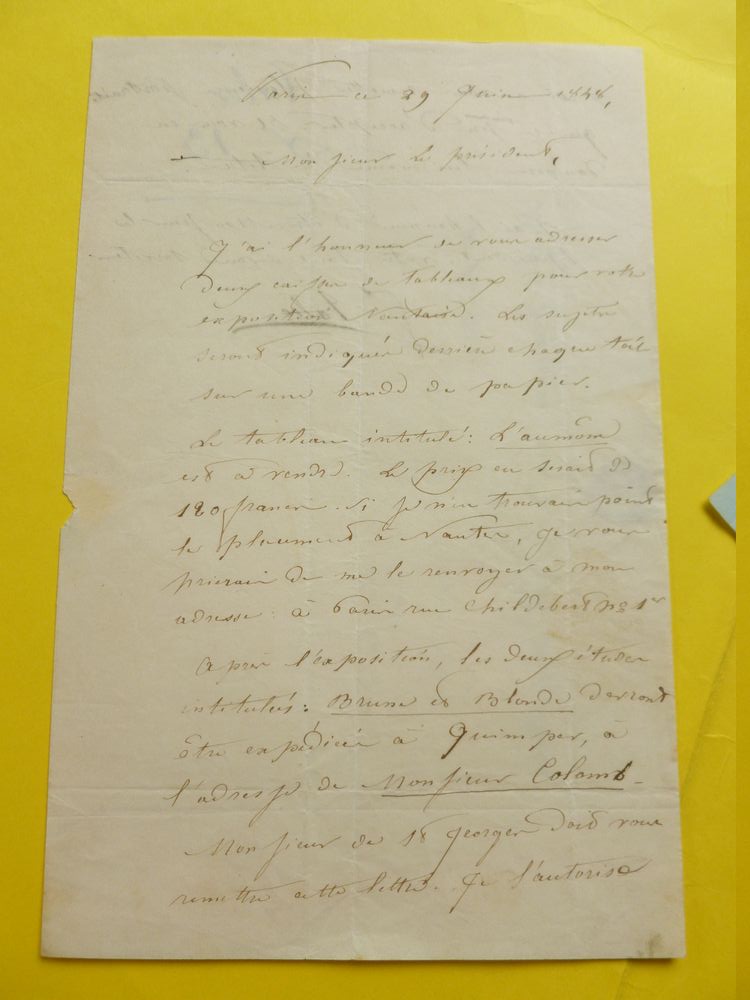 Paris ce 29 Juin 1848,
Monsieur le président,
J'ai l'honneur de vous adresser
deux caisses de tableaux pour votre
exposition Nantaise. Les sujets
seront indiqués derrière chaque toile
sur une bande de papier.
Le tableau intitulé: L'aumône
est à vendre. Le prix en serait de
120 francs. Si je n'en trouvais point
le placement à Nantes, je vous
prierais de me le renvoyer à mon
adresse: à Paris rue Childebert no 1er
Après l'exposition, les deux études
intitulés: Brune et Blonde devront
être expédiées à Quimper, à
l'adresse de Monsieur Colomb.
Monsieur de St Georges doit vous
remettre cette lettre. Je l'autorise